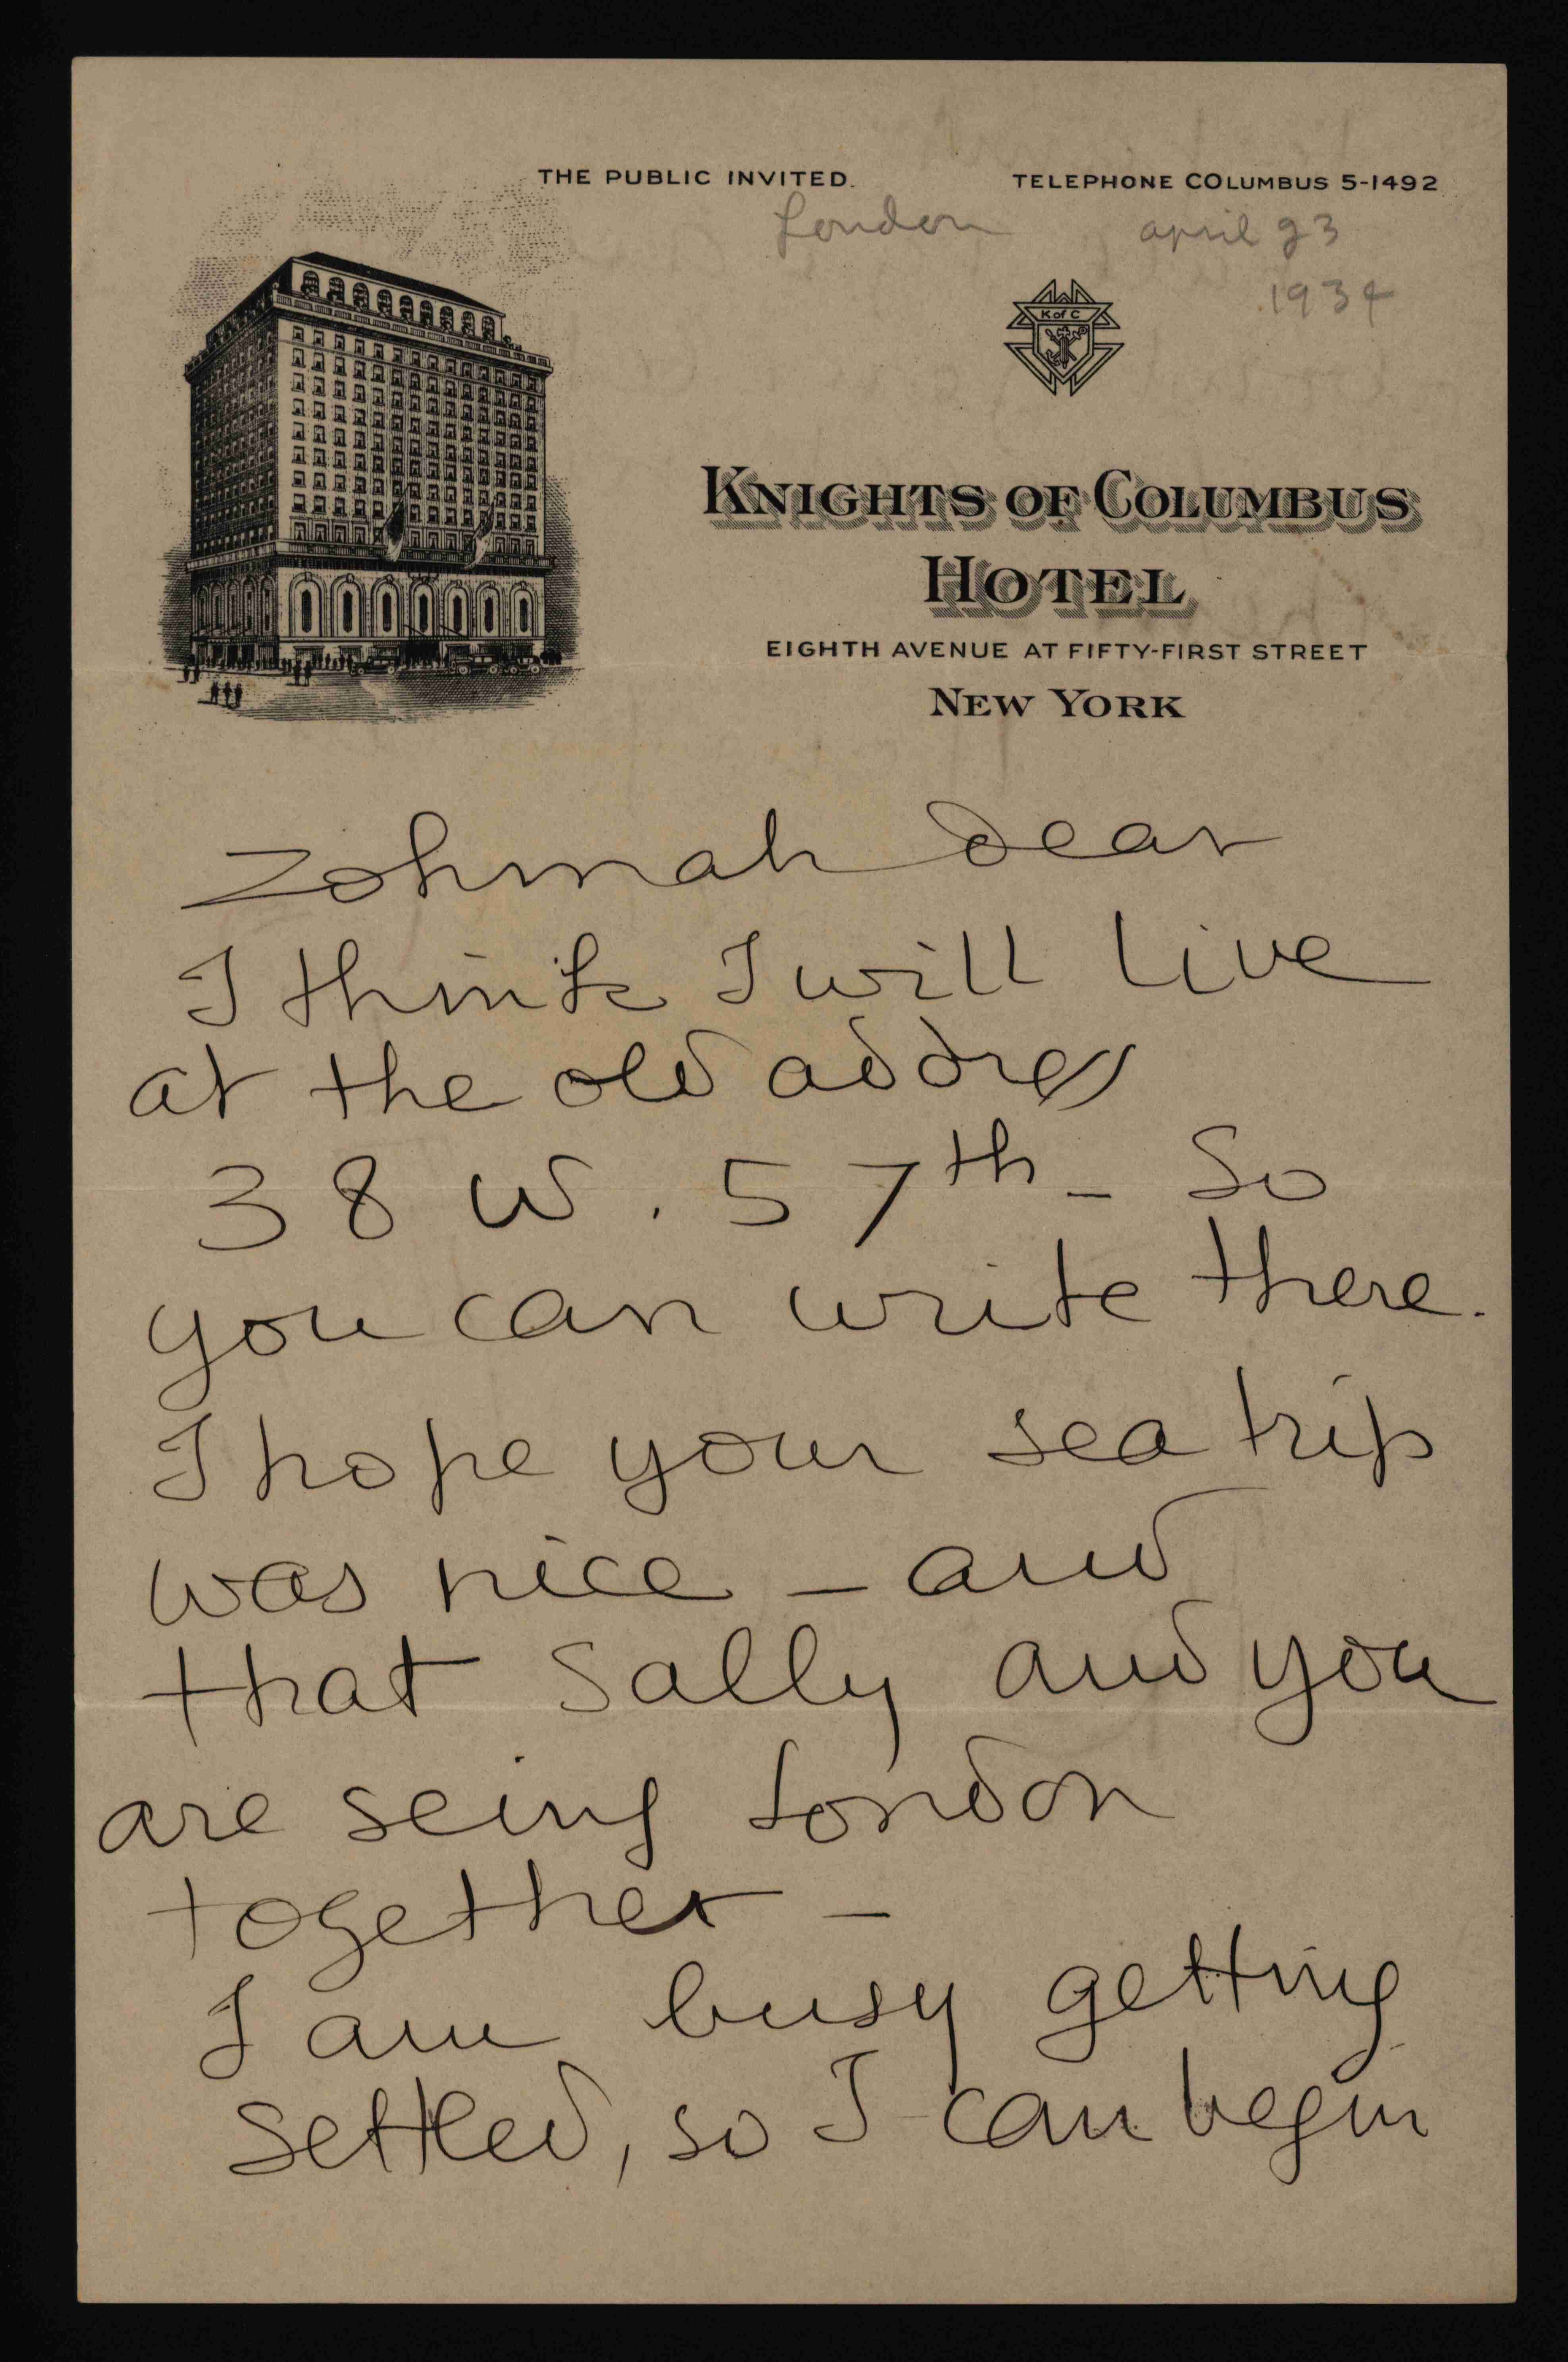 THE PUBLIC INVITED. TELEPHONE COLUMBUS 5-1492
London april 23
1934
K of C
KNIGHTS OF COLUMBUS
HOTEL
EIGHTH AVENUE AT FIFTY-FIRST STREET
NEW YORK
Zohmah dear
I think I will live
at the old address
38 W. 57th - So
you can write there.
I hope your sea trip
was nice - and
that Sally and you
are seing London
together -
I am busy getting
settled, so I can begin